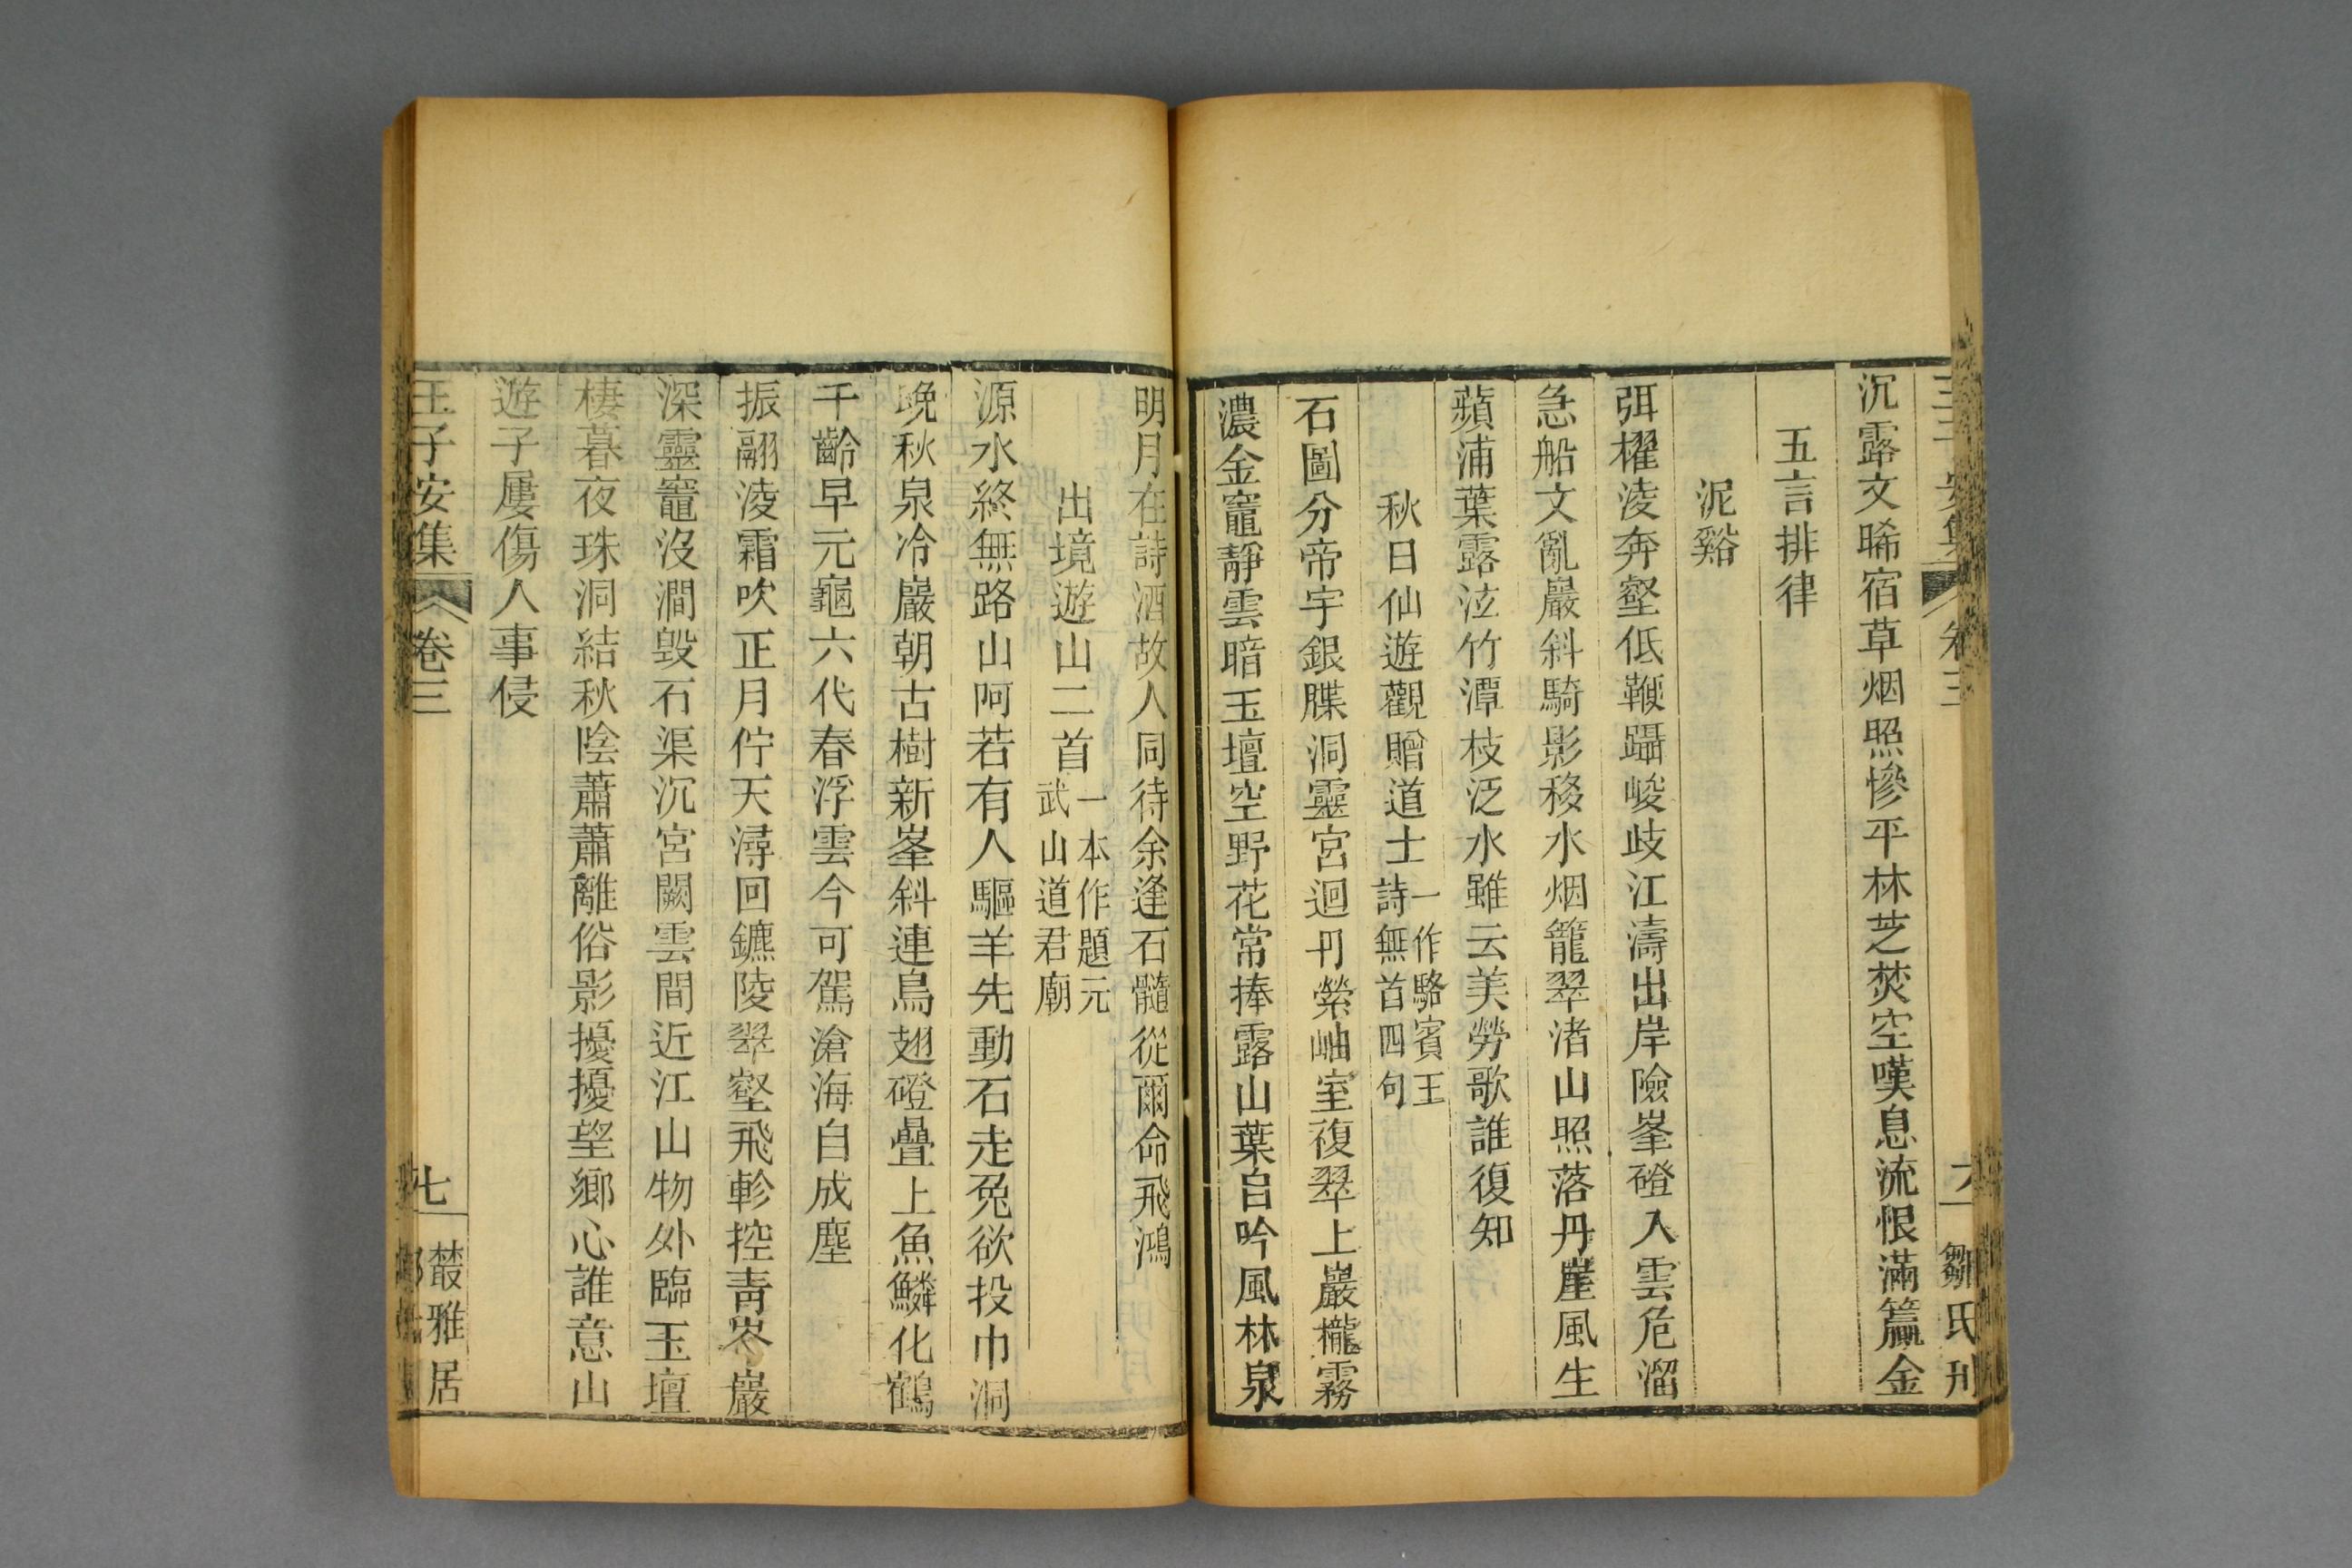 沉露文晞宿草烟照慘平林芝焚空嘆息流恨滿籯金
五言排律
泥谿
弭櫂淩奔壑低鞭躡峻歧江濤出岸險峯磴入雲危溜
急船文亂巖斜騎影移水烟籠翠渚山照落丹崖風生
蘋浦葉露泫竹潭枝泛水雖云美勞歌誰復知
秋日仙遊觀贈道士
一作駱賓王
詩無首四句
石圖分帝宇銀牒洞靈宮迴丹縈岫室復翠上巖櫳霧
濃金竈靜雲暗玉壇空野花常捧露山葉自吟風林泉
明月在詩酒故人同待余逢石髓從爾命飛鴻
出境遊山二首
一本作題元
武山道君廟
源水終無路山阿若有人驅羊先動石走兔欲投巾洞
晚秋泉冷巖朝古樹新峯斜連鳥翅磴疊上魚鱗化鶴
千齡早元龜六代春浮雲今可駕滄海自成塵
振翮淩霜吹正月佇天潯回鑣陵翠壑飛軫控青岑巖
深靈竈沒澗毀石渠沉宮闕雲間近江山物外臨玉壇
棲暮夜珠洞結秋陰蕭蕭離俗影擾擾望鄉心誰意山
遊子屢傷人事侵
王子安集
卷三
七
叢雅居
鄒氏刋